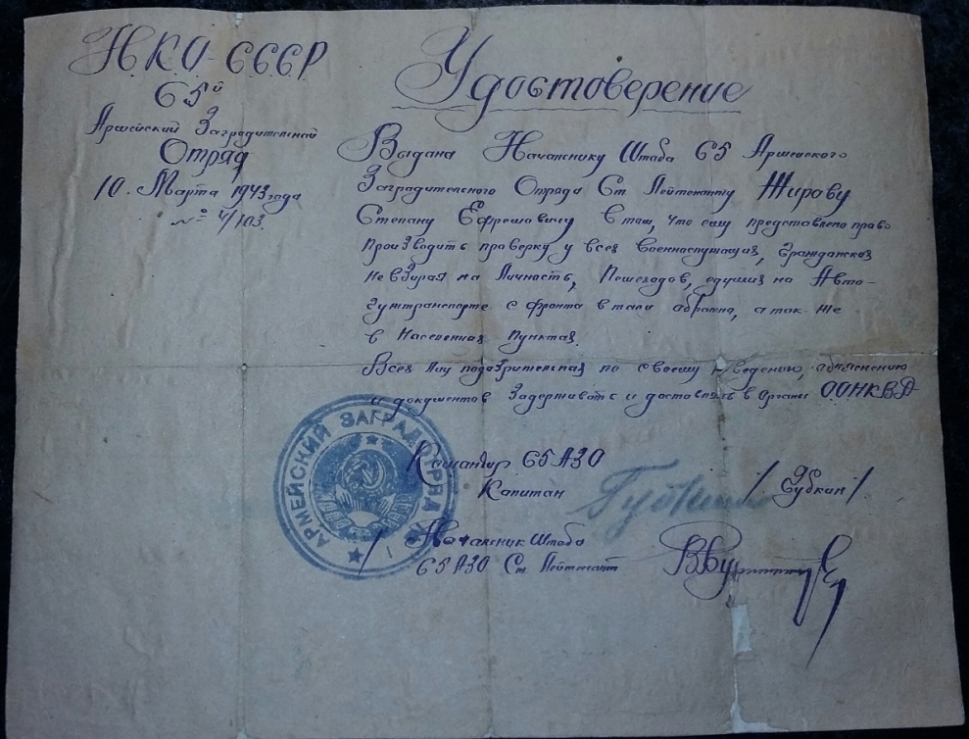 Н.К.О. С.С.С.Р
65й
Армейский Заградительный
Отряд
10. Марта 1943 года
№ 4/103.
Удостоверение
Выдана Начальнику Штаба 65 Армейского
Заградительного Отряда Ст. Лейтенанту Жирову
Степану Ефремовичу в том, что ему предоставлено право
производить проверку у всех военнослужащих, гражданских
невзирая на Личность, Пешеходов, едущих на Авто-
гужтранспорте с фронта в тыл и обратно, а так же
в Населенных Пунктах.
Всех Лиц подозрительных по своему поведению,
и документов Задерживать и доставлять в органы ООНКВД
Командир 65 АЗО
Капитан / Губкин /.
/ Начальник Штаба
65 АЗО Ст. Лейтенант
АРМЕЙСКИЙ ЗАГРАДОТРЯД